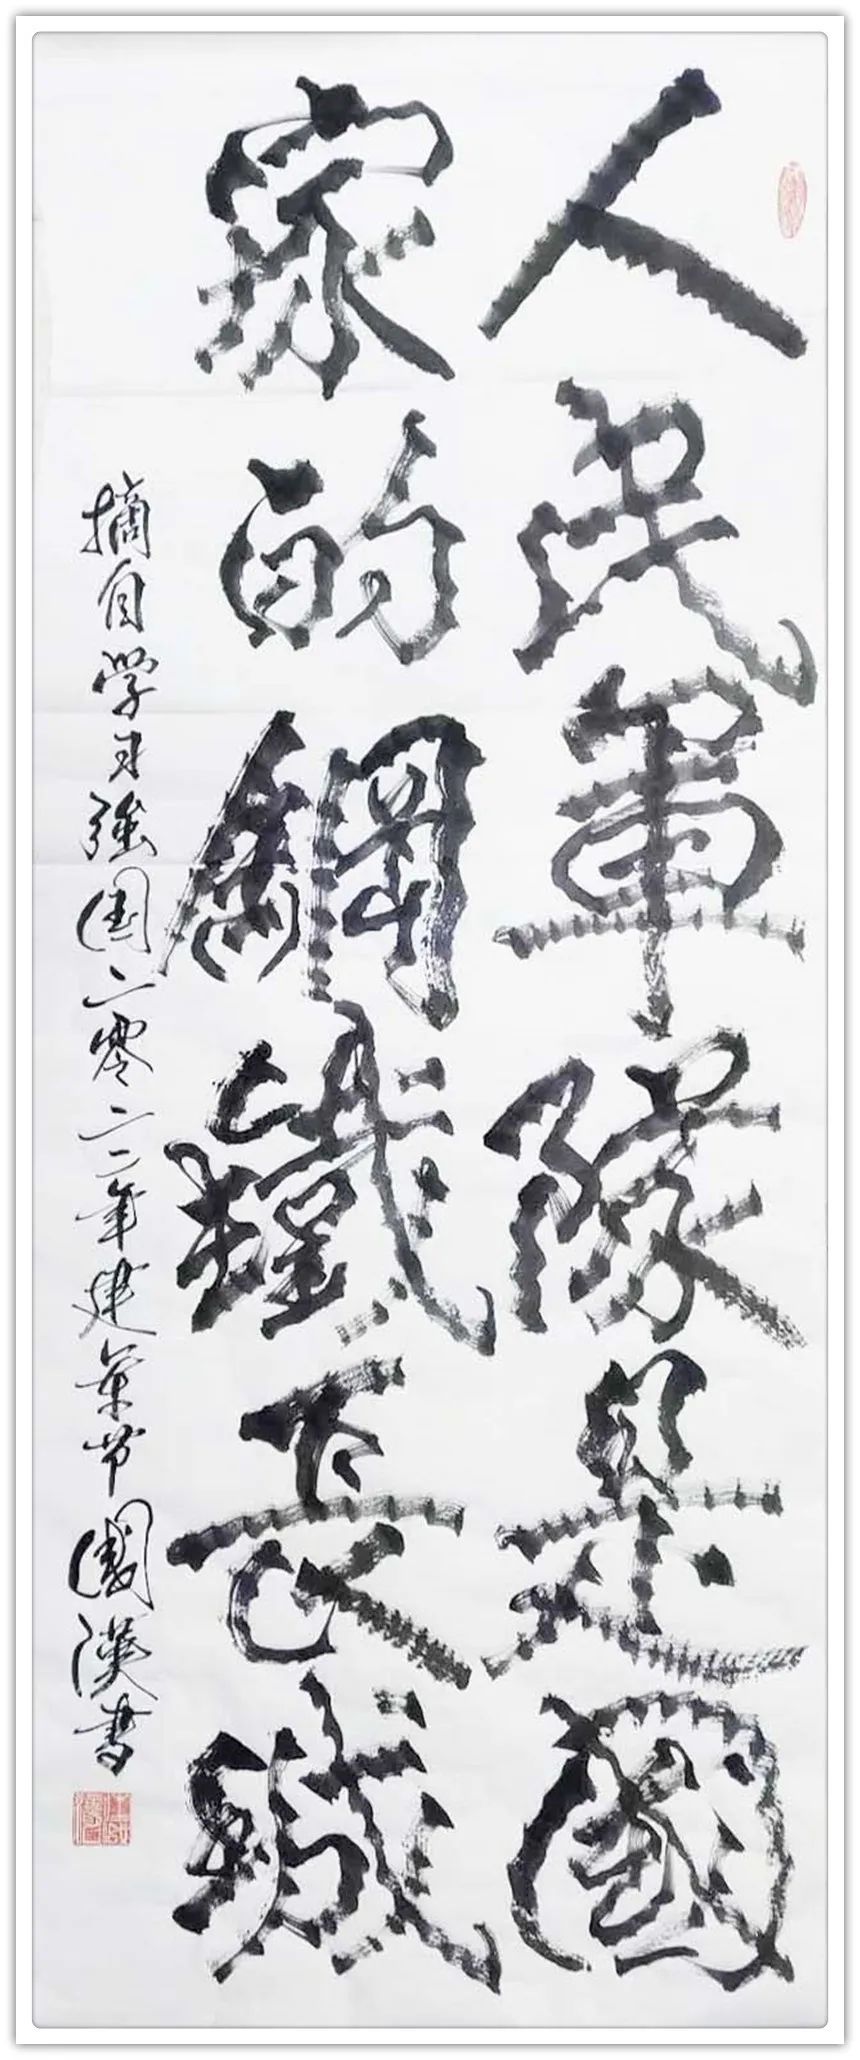 人民军隊是國
家的鋼鐵長城
摘自学习強国二零二二年建军节國漢书